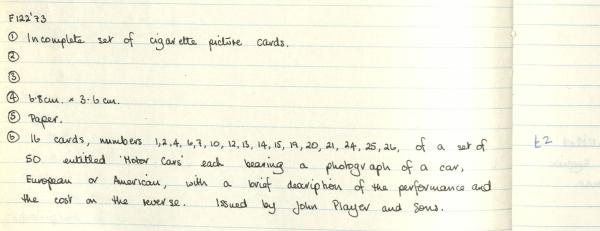 F122'73
① Incomplete set of cigarette picture cards.
②
③
④ 6.8cm. x 3.6cm.
⑤ Paper.
⑥ 16 cards, numbers 1,2,4,6,7,10,12,13,14,15,19,20,21,24,25,26, of a set of
50 entitled 'Motor Cars' each bearing a photograph of a car,
European or American, with a brief description of the performance and
the cost on the reverse. Issued by John Player and Sons.
£2